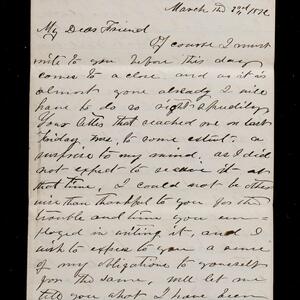 March the 22nd 1872
My Dear Friend
Of course I must
write to you before this day
comes to a close and as it is
almost gone already I will
have to do so right speedily
Your letter that reached me on last
Friday was, to some extent, a
surprise to my mind, as I did
not expect to receive it at
that time, I could not be other
wise than thankful to you for the
trouble and time you em-
ployed in writing it, and I
wish to express to you a sense
of my obligations to yourself
for the same, will let me
tell you what I have been